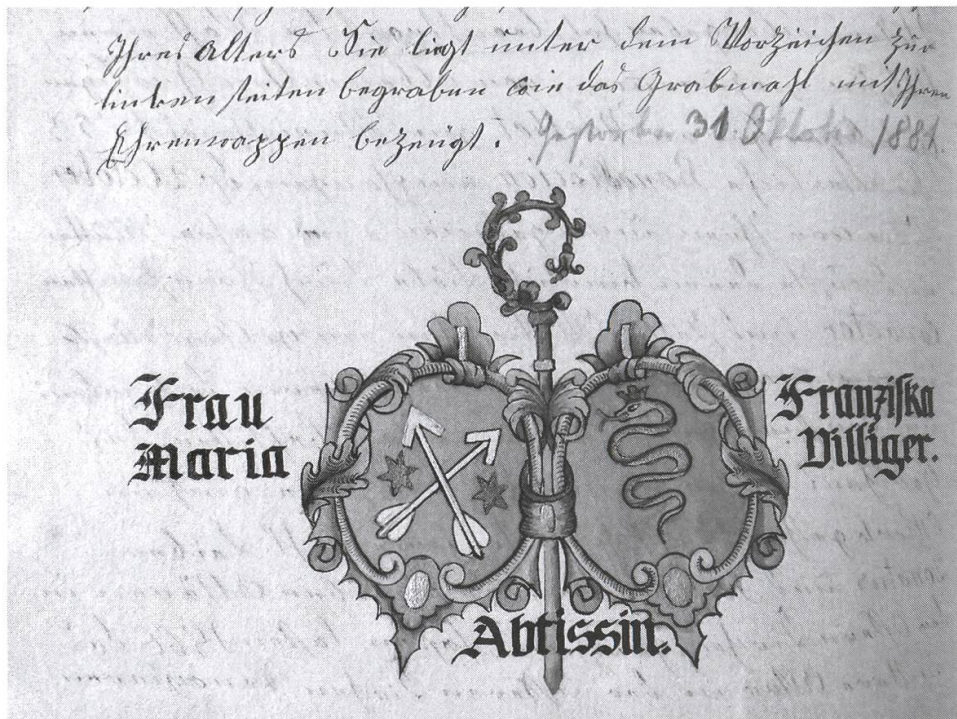 Ihres Alters Sie liegt unter dem Vorzeichen zur
linken seiten begraben wie das Grabmahl mit Ihren
Ehrenwappen bezeügt. Gestorben 31 Oktober 1881.
Frau
Maria
Franziska
Villiger.
Abtissin.